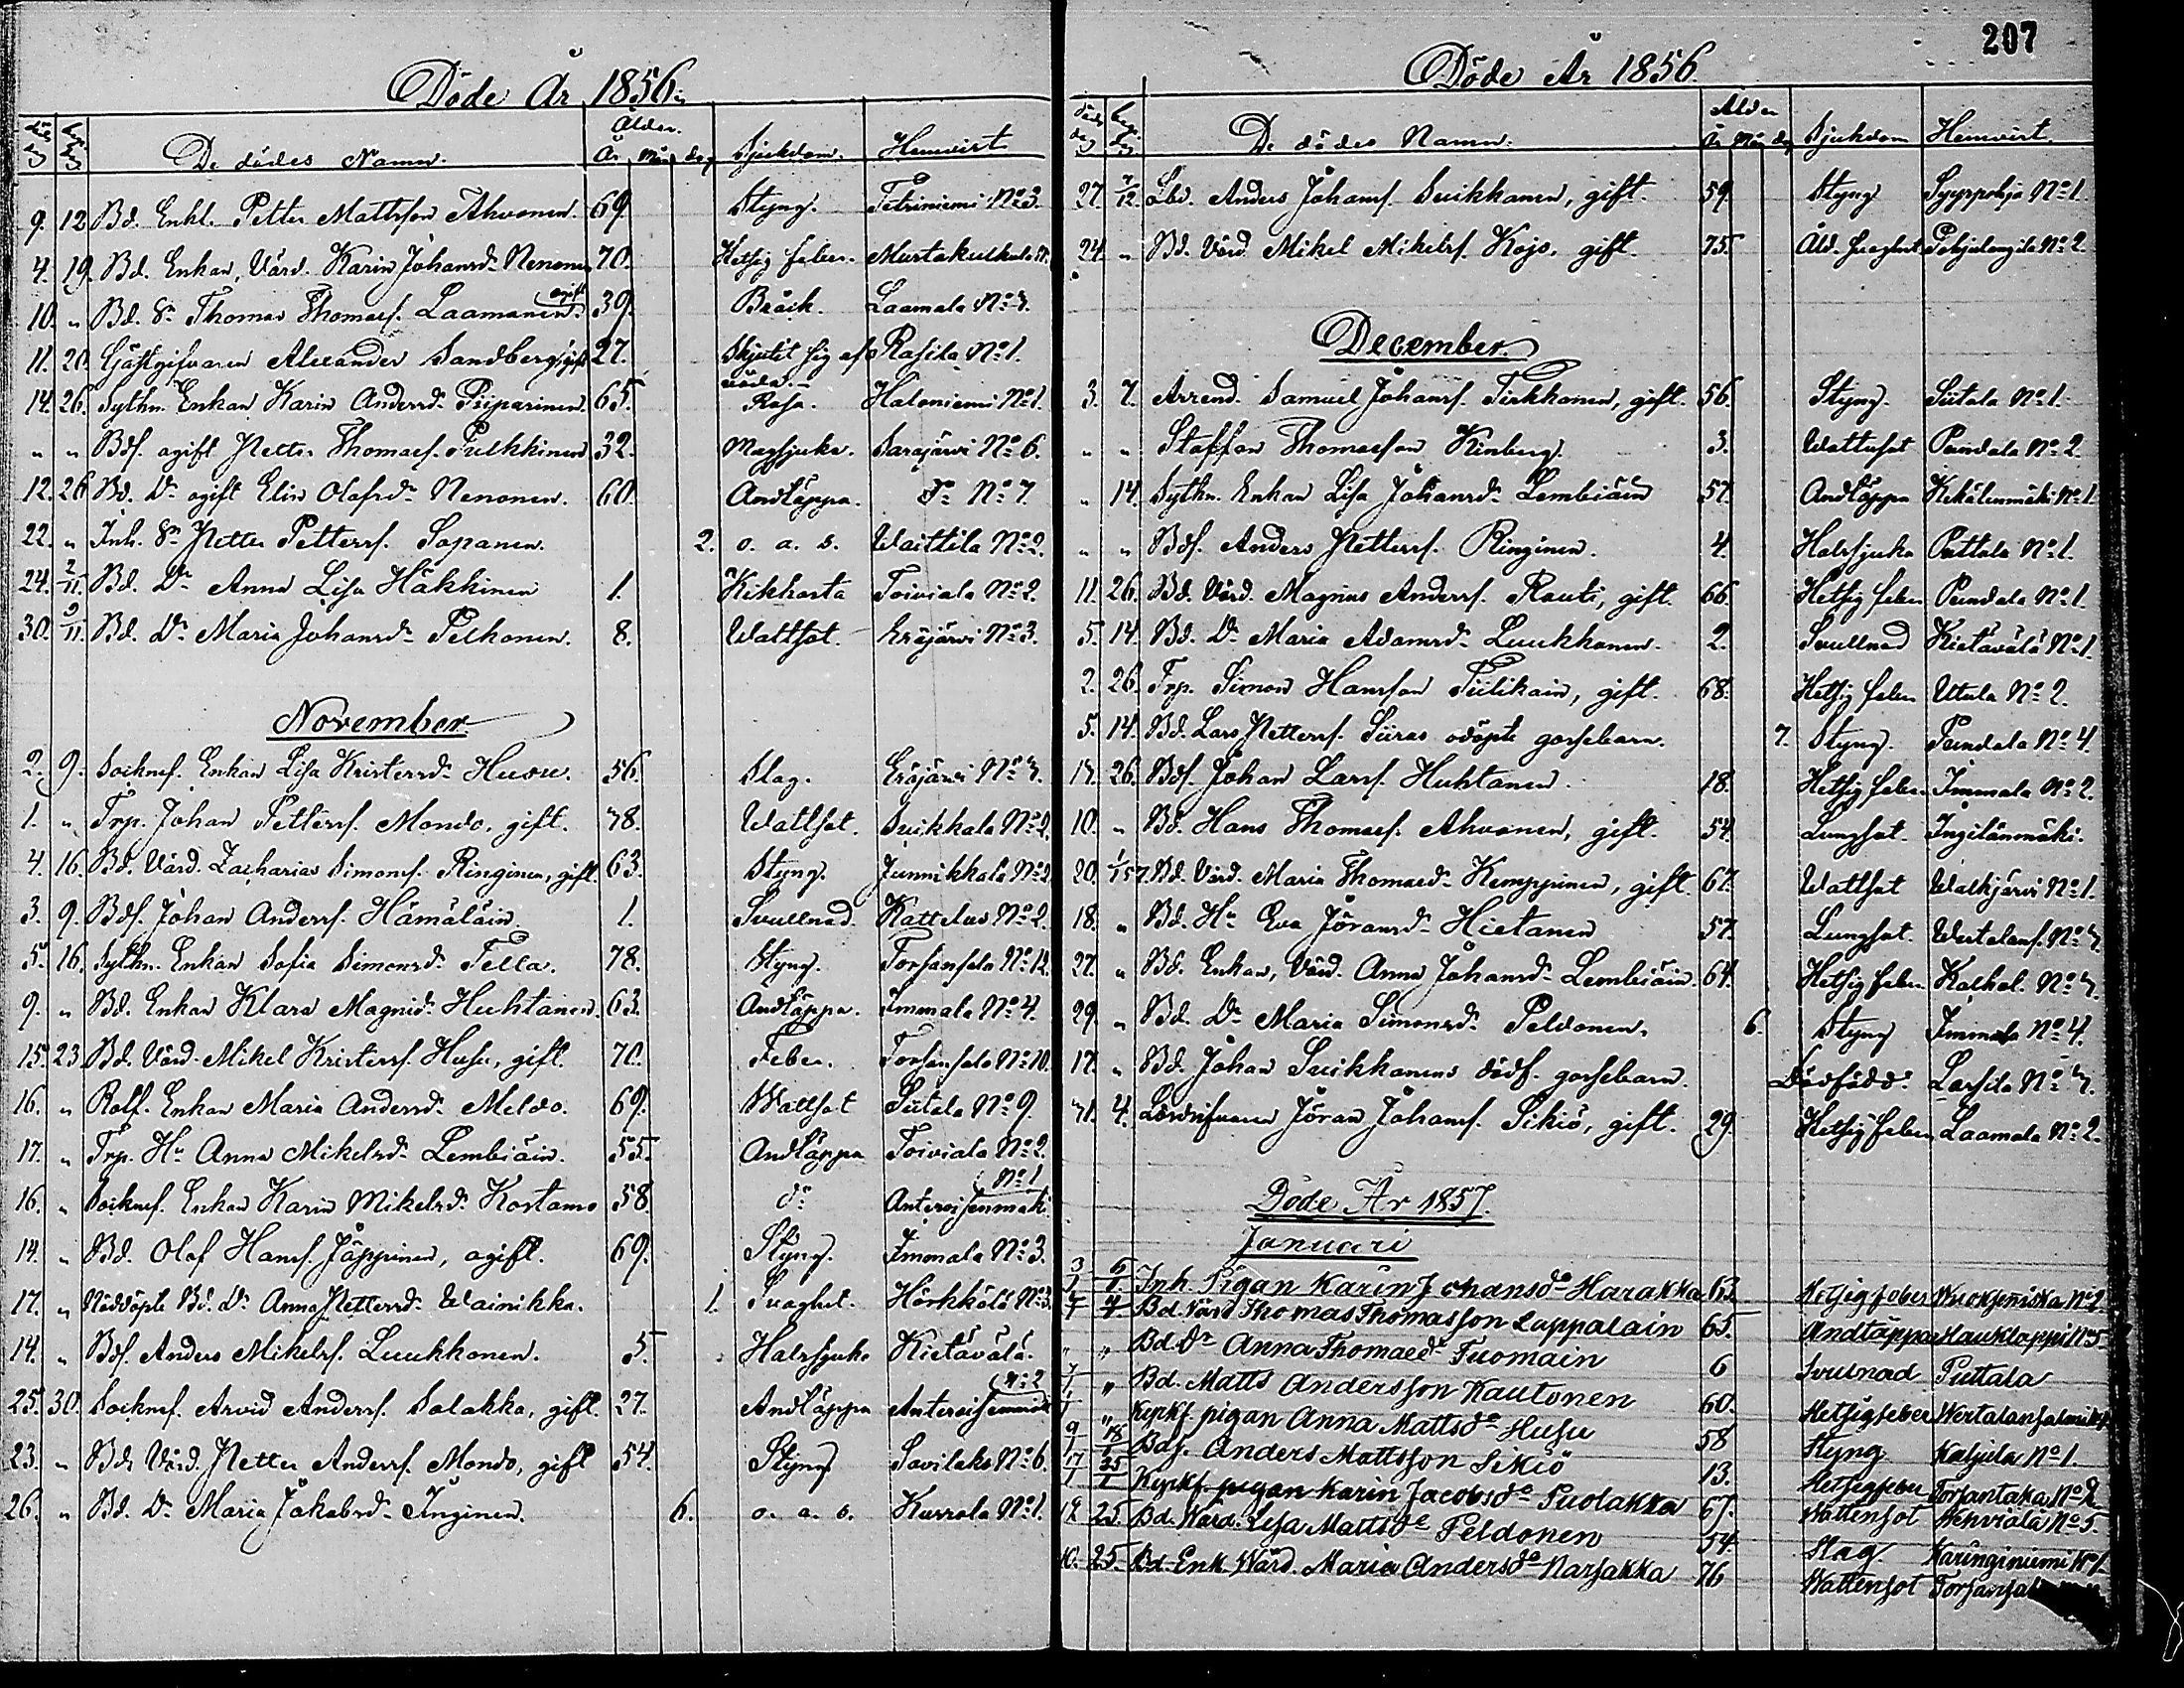 Döde År 1856.
död dag begr. dag De dödes Namn. Ålder. År Mån dag Sjukdom. Hemvist
9. 12 Bd. Enkl. Petter Mattsson Ahvonen. 69. Styng. Petriniemi No 3.
4. 19. Bd. Enkan, Värd. Karin Johansdr Nenonen 70. Hetsig feber. Murtakulkula
10. " Bd. Sn Thomas Thomasf. Laamanen. ogift 39. Bråck. Laamala No 3.
11. 20. Gästgifvaren Alexander Sandberg, gift 27. Skjutit sig af våda. Rasila No 1.
14. 26. Sythn. Enkan Karin Andersdr Piiparinen. 65. Rosa. Haloniemi No 1.
" " Bdf. ogift Petter Thomasf. Pulkkinen 32. Magsjuka. Sarajärvi No 6.
12. 26 Bd. Dr ogift Elin Olafsdr Nenonen. 60. Andtäppa. Do No 7.
22. " Inh. Sn Petter Petterf. Sopanen. 2. o. a. s. Waittila No 2.
24. 2/11. Bd. Dr Anna Lisa Häkkinen 1. Kikhosta Toiviala No 2.
30. 9/11. Bd. Dr Maria Johansdr Pelkonen. 8. Wattsot. Eräjärvi No 3.
November.
2. 9. Socknef. Enkan Lisa Kristersdr Husu. 56. Slag. Eräjärvi No 3.
1. " Trp. Johan Petterf. Mondo, gift. 78. Wattsot. Suikkala No 2.
4. 16. Bd. Värd. Zacharias Simonf. Ringinen, gift. 63. Styng. Junnikkala No 2
3. 9. Bdf. Johan Andersf. Hämäläin 1. Svullnad. Kattelus No 2.
5. 16. Sythn. Enkan Sofia Simonsdr Tella. 78. Styng. Torsansalo No 12.
9. " Bd. Enkan Klara Magnidr Huhtanen. 63. Andtäppa. Immala No 4.
15. 23 Bd. Värd. Mikel Kristersf. Husu, gift. 70. Feber. Torsansalo No 10.
16. " Rolf. Enkan Maria Andersdr Meldo. 69. Wattsot Siitala No 9.
17. " Trp. Hu Anna Mikelsdr Lembiäin. 55. Andtäppa Toiviala No 2.
16. " Socknef. Enkan Karin Mikelsdr Kostamo 58. do No 1 Anteroisenmäki
14. " Bd. Olof Hansf. Jäppinen, ogift. 69. Styng. Immala No 3.
17. " Nöddöpte Bd. Dr Anna Pettersdr Wainikka. 1. Svaghet. Hörkkölä No 3.
14. " Bdf. Anders Mikelsf. Luukkonen. 5. Halssjuka Kietävälä.
25. 30. Socknef. Arvid Andersf. Salakka, gift. 27. Andtäppa No 2 Anteroisenmäki
23. " Bd. Värd. Petter Andersf. Mondo, gift 54. Styng Savilaks No 6.
26. " Bd. Dr Maria Jakobsdr Inginen. 6. o. a. s. Kurrola No 1.
207
Döde År 1856.
död dag begr. dag De dödes Namn. Ålder År Mån dag Sjukdom Hemvist.
27. 7/12. Lbd. Anders Johansf. Suikkanen, gift. 59. Styng Syyspohja No 1.
24. " Bd. Värd. Mikel Mikelsf. Kojo, gift. 75. Åld. svaghet Pohjalangila No 2.
December.
3. 7. Arrend. Samuel Johansf. Pirkkonen, gift. 56. Styng. Siitala No 1.
" " Staffan Thomasson Kinberg. 3. Wattusot Pundala No 2.
" 14. Sythn. Enkan Lisa Johansdr Lembiäin 57. Andtäppa Kekälenmäki No 1.
" " Bdf. Anders Petterf. Ringinen. 4. Halssjuka Puttola No 1.
11. 26. Bd. Värd. Magnus Andersf. Rauti, gift. 66. Hetsig feber Pundala No 1.
5. 14. Bd. Dr Maria Adamsdr Luukkonen. 2. Svullnad Kietävälä No 1.
2. 26. Trp. Simon Hansson Piilikain, gift. 68. Hetsig feber Utula No 2.
5. 14. Bd. Lars Petterf. Siiras odöpte gossebarn. 7. Styng. Pundala No 4.
17. 26. Bdf. Johan Larsf. Huhtanen. 18. Hetsig feber Immala No 2.
10. " Bd. Hans Thomasf. Ahvonen, gift. 54. Lungsot. Ingilänmäki.
20. 1/1 57. Bd. Värd. Maria Thomasdr Kemppinen, gift. 67. Wattsot Walkjärvi No 1.
18. " Bd. Hu Eva Jöransdr Hietanen 57. Lungsot. No 3.
27. " Bd. Enkan, Värd. Anna Johansdr Lembiäin. 64. Hetsig feber No 3.
29. " Bd. Dr Maria Simonsdr Peldonen. 6. Styng Immala No 4.
17. " Bd. Johan Suikkanens dödf. gossebarn. Dödfödd. Larsila No 3.
31. 4. Johansf. Sikiö, gift. 29. Hetsig feber Laamala No 2.
Döde År 1857.
Januari
3/1 6/1 Inh. Pigan Karin Johansdo Harakka 63 Hetsig feber Wuoksenniska No 2
Bd. Värd Thomas Thomasson Lappalain 65. Andtäppa Haukkappi No 5
" " Bd. Dr Anna Thomaedr Tuomain 6 Svulnad Puttala
" Bd. Matts Andersson Kautonen 60. Hetsig feber
" Kyrkf. pigan Anna Mattsdo Husu 58 Styng Kaljula No 1.
9/1 18/1 Bdf. Anders Mattsson Sikiö 13. Hetsig feber Torsantaka No 2
17/1 25/1 Kyrkf. pigan Karin Jacobsdo Puolakka 67. Wattensot No 5.
12 25. Bd. Wärd. Lisa Mattsdo Peldonen 54. Slag. Karinginiemi No 1.
10. 25. Bd. Enk. Wärd. Maria Andersdo Narsakka 76 Wattensot